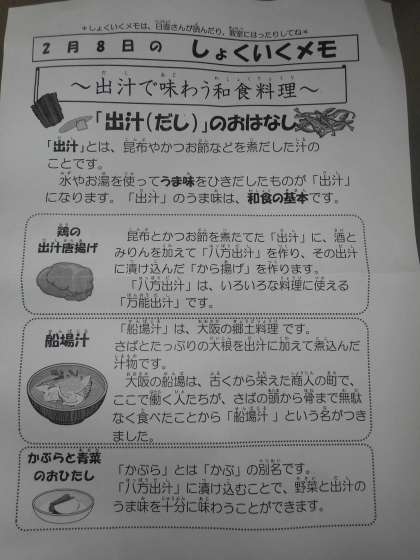 *しょくいくメモは、日直さんが読んだり、教室にはったりしてね*
2月8日の しょくいくメモ
～出汁で味わう和食料理～
「出汁(だし)」のおはなし
「出汁」とは、昆布やかつお節などを煮だした汁の
ことです。
水やお湯を使ってうま味をひきだしたものが「出汁」
になります。「出汁」のうま味は、和食の基本です。
鶏の
出汁唐揚げ
昆布とかつお節を煮たてた「出汁」に、酒と
みりんを加えて「八方出汁」を作り、その出汁
に漬け込んだ「から揚げ」を作ります。
「八方出汁」は、いろいろな料理に使える
「万能出汁」です。
船場汁
「船場汁」は、大阪の郷土料理です。
さばとたっぷりの大根を出汁に加えて煮込んだ
汁物です。
大阪の船場は、古くから栄えた商人の町で、
ここで働く人たちが、さばの頭から骨まで無駄
なく食べたことから「船場汁」という名がつき
ました。
かぶらと青菜
のおひたし
「かぶら」とは「かぶ」の別名です。
「八方出汁」に漬け込むことで、野菜と出汁の
うま味を十分に味わうことができます。